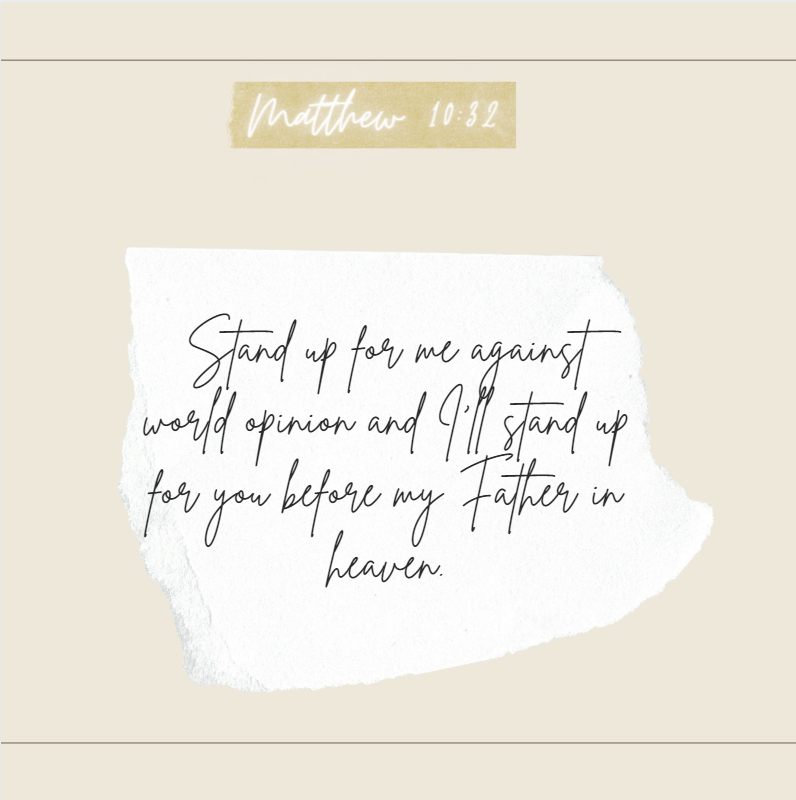 Matthew 10:32
Stand up for me against
world opinion and I'll stand up
for you before my Father in
heaven.